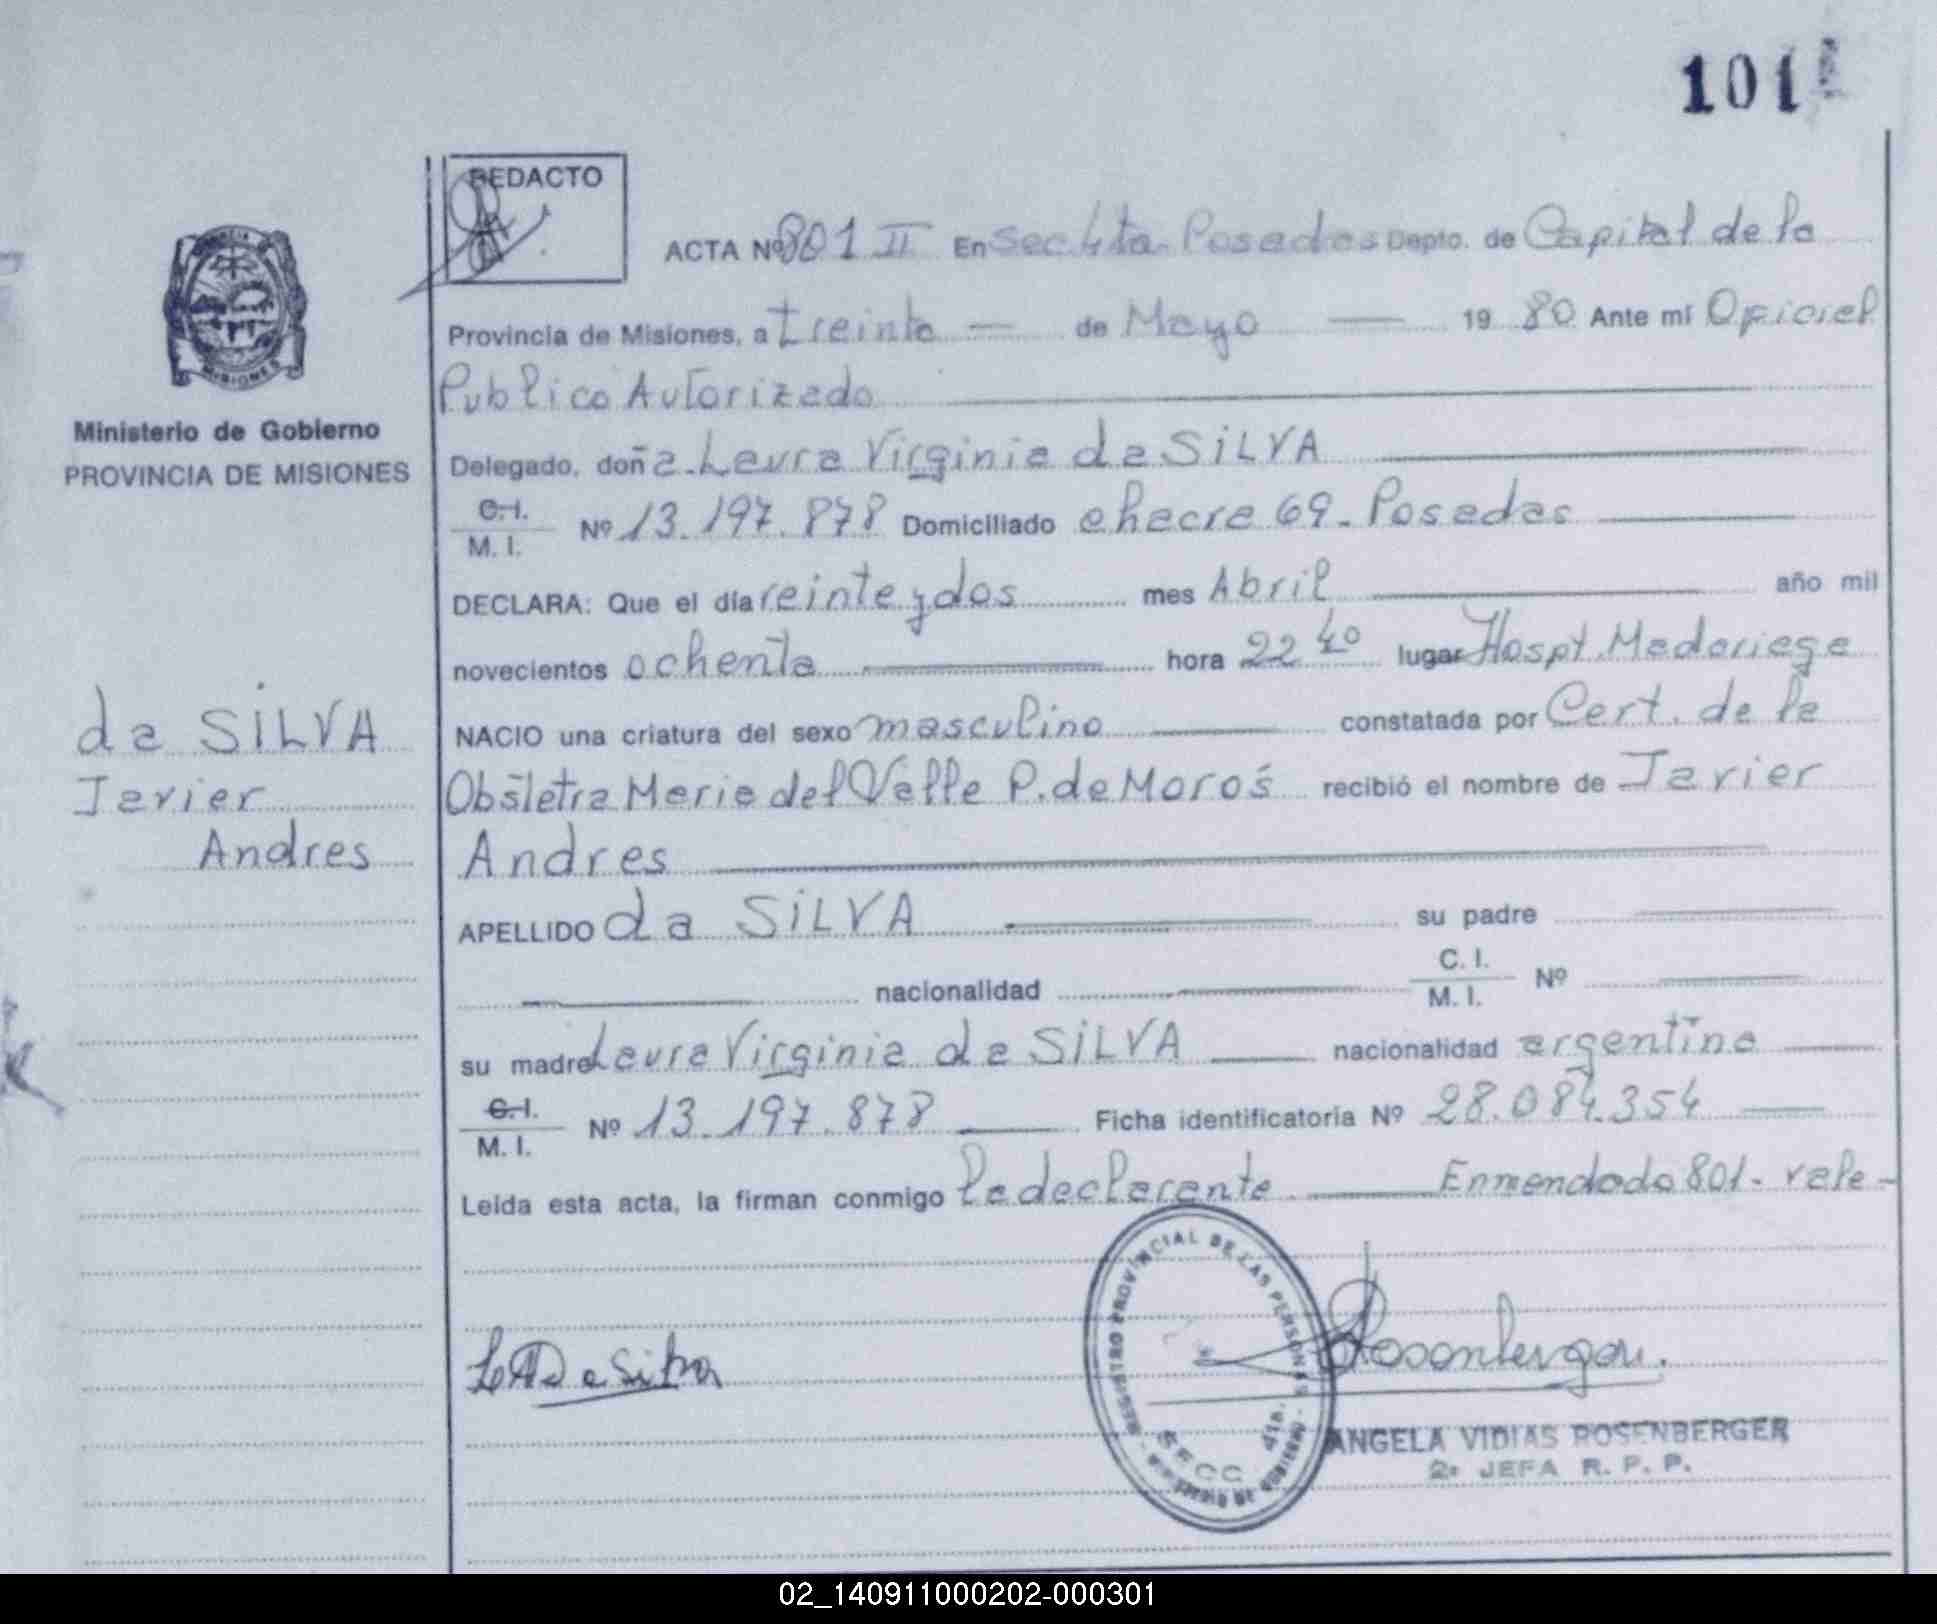 101
REDACTO
ACTA Nº 801 II En Sec 4ta. Posadas Depto. de Capital de la
Provincia de Misiones, a treinta — de Mayo — 19 80 Ante mí Oficial
Publico Autorizado
Ministerio de Gobierno
PROVINCIA DE MISIONES
Delegado, doña Laura Virginia da SILVA
C.I. / M. I. Nº 13.197.878 Domiciliado chacra 69 - Posadas
DECLARA: Que el día veinte y dos mes Abril año mil
novecientos ochenta hora 22 40 lugar Hospt. Madariaga
NACIO una criatura del sexo masculino constatada por Cert. de la
Obstetra Maria del Valle P. de Moros recibió el nombre de Javier
Andres
da SILVA
Javier
Andres
APELLIDO da SILVA su padre
nacionalidad C. I. / M. I. Nº
su madre Laura Virginia da SILVA nacionalidad argentina
C.I. / M. I. Nº 13.197.878 Ficha identificatoria Nº 28.084.354
Leída esta acta, la firman conmigo la declarante Enmendado 801 - vale -
REGISTRO PROVINCIAL DE LAS PERSONAS
SECC 4ta.
Rosenberger
ANGELA VIDIAS ROSENBERGER
2a JEFA R. P. P.
MISIONES
02_140911000202-000301